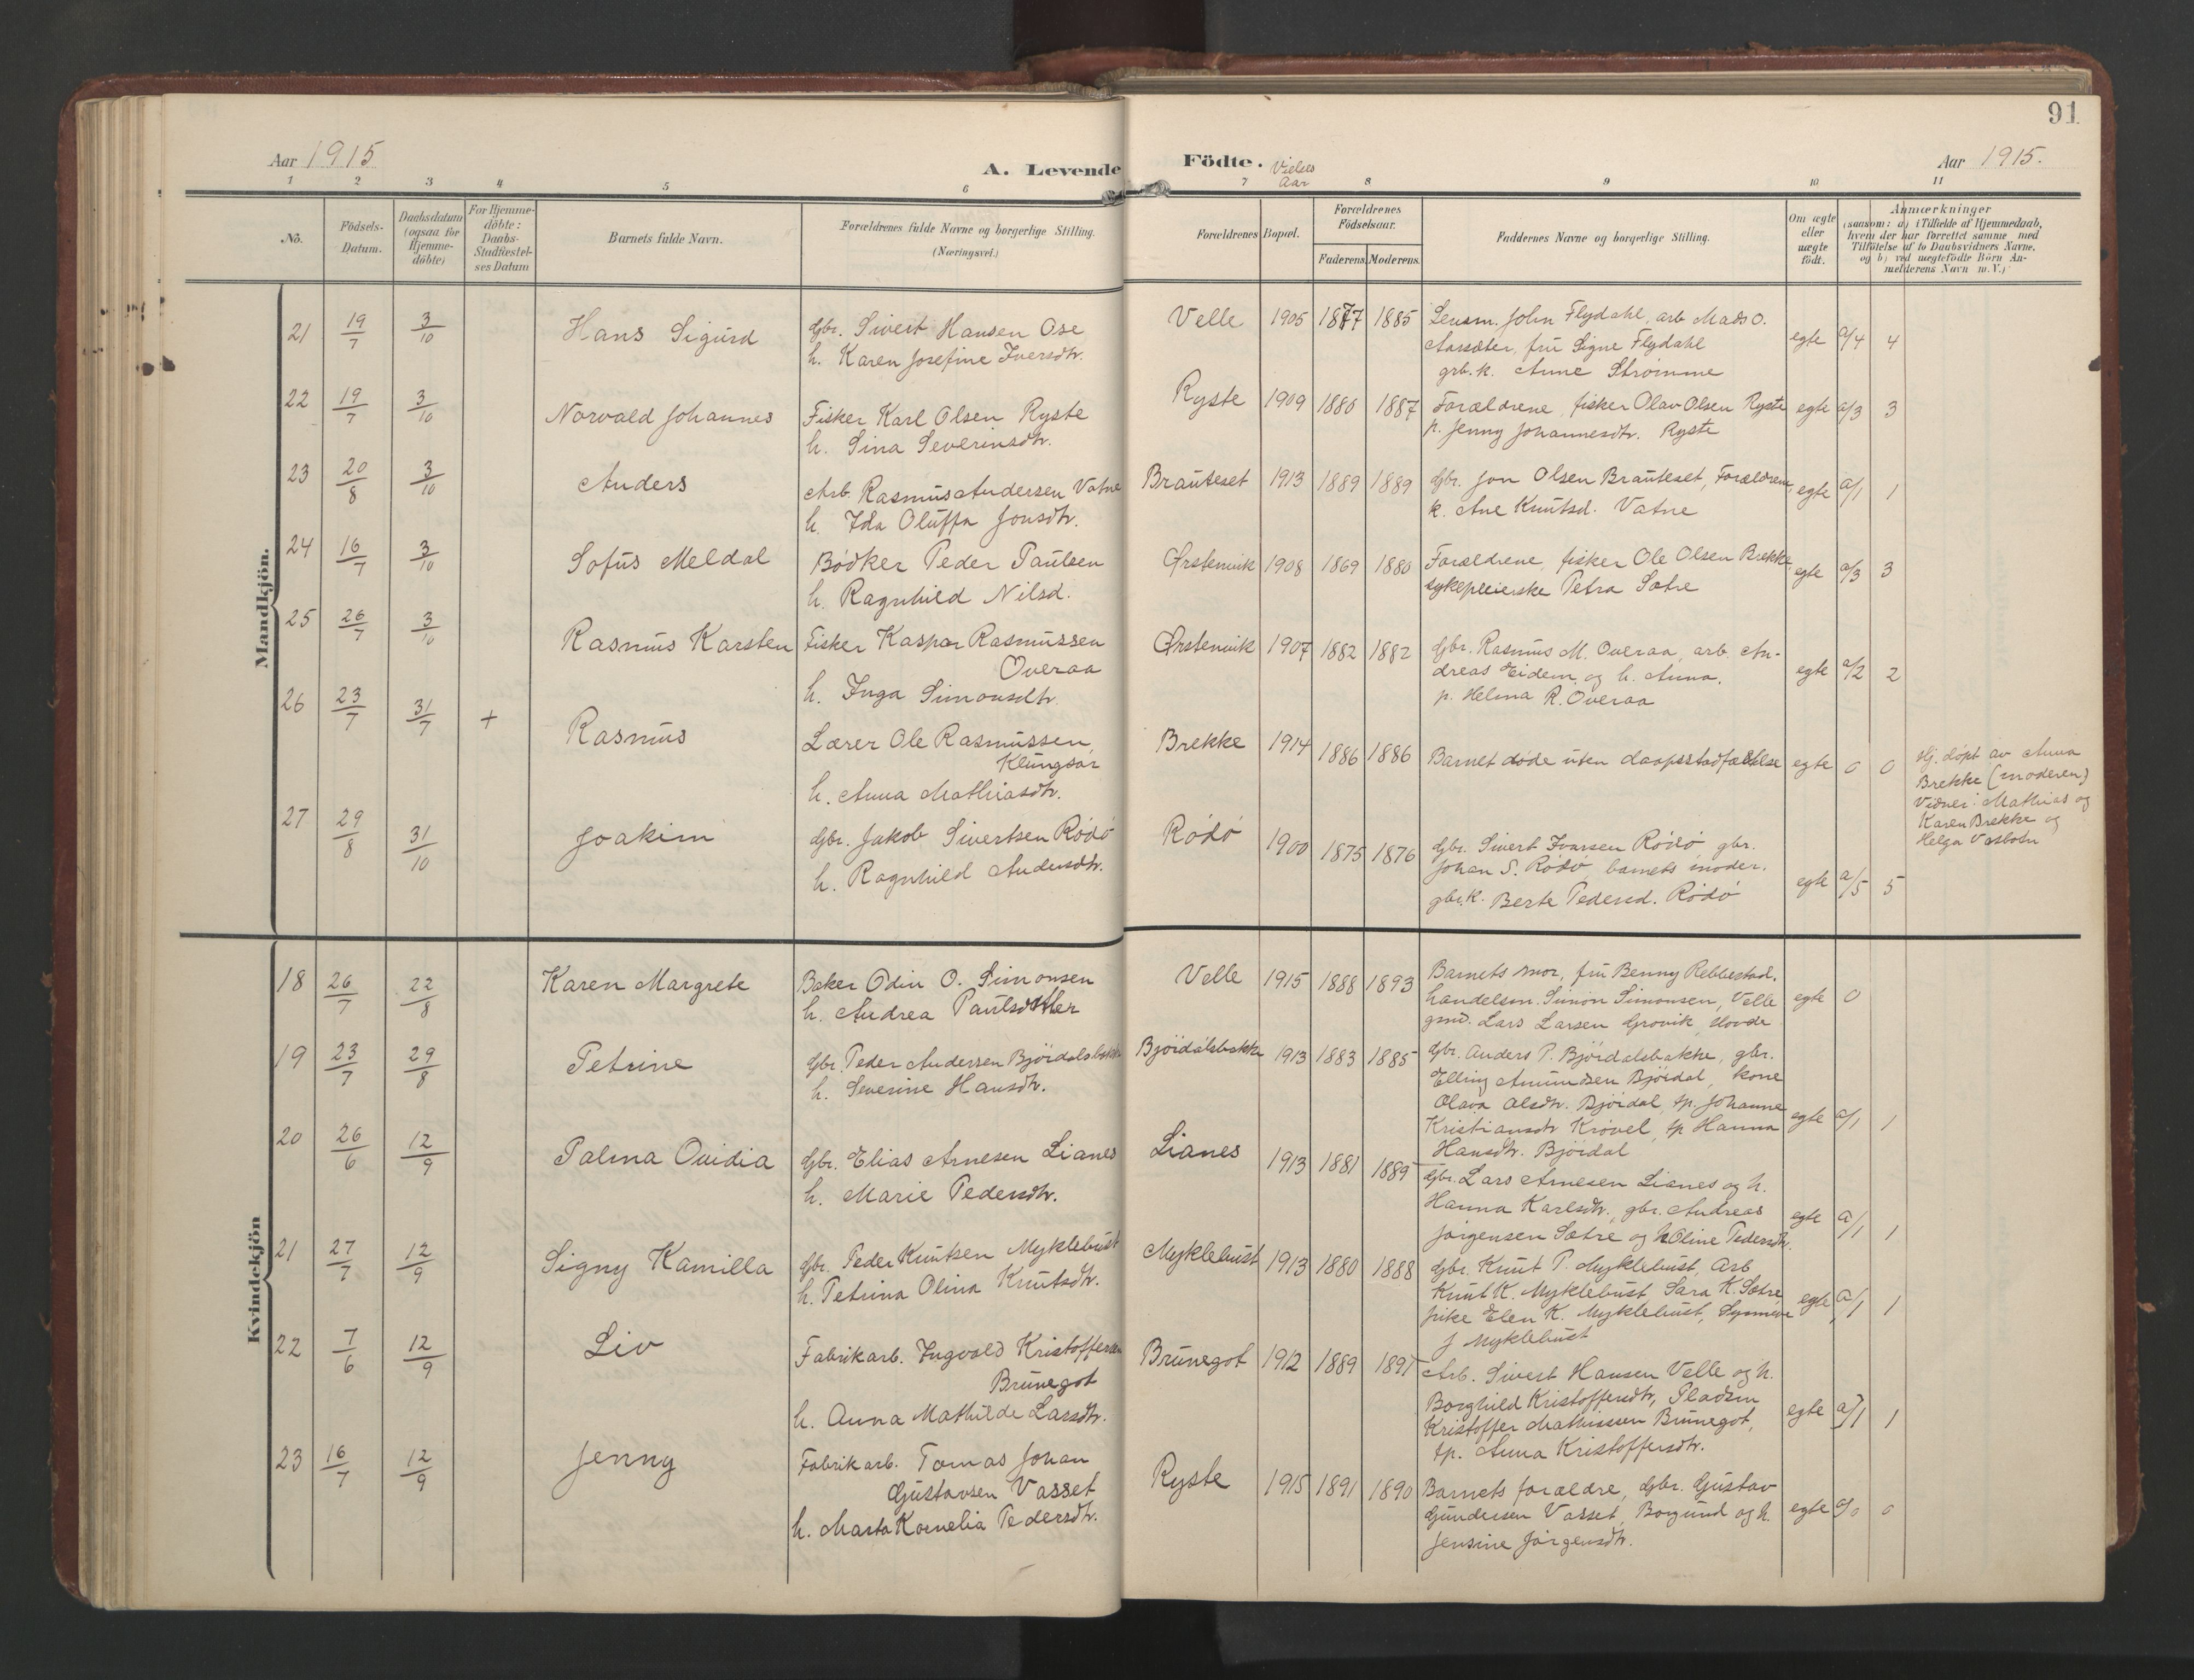 91
Aar 1915
A. Levende Födte.
Vielses Aar
Aar 1915.
1 2 3 4 5 6 7 8 9 10 11
No.
Födsels-Datum.
Daabsdatum (ogsaa for Hjemme-döbte)
For Hjemme-döbte: Daabs-Stadfæstel-ses Datum
Barnets fulde Navn.
Forældrenes fulde Navne og borgerlige Stilling. (Næringsvei.)
Forældrenes Bopæl.
Forældrenes Födselsaar.
Faderens. Moderens.
Faddernes Navne og borgerlige Stilling.
Om ægte eller uægte födt.
Anmærkninger
(saasom: a) i Tilfælde af Hjemmedaab,
hvem der har forrettet samme med
Tilföielse af to Daabsvidners Navne,
og b) ved uægtefödte Börn An-
melderens Navn m.V.)
Mandkjön.
21 19/7 3/10 Hans Sigurd
Gbr. Sivert Hansen Ose
h. Karen Josefine Iversdtr.
Velle 1905 1877 1885
Lensm. John Flydahl, arb. Mads O.
Aarsæter, fru Signe Flydahl
grb.k. Anne Strømme
egte a/4 4
22 19/7 3/10 Norvald Johannes
Fisker Karl Olsen Ryste
h. Sina Severinsdtr.
Ryste 1909 1880 1887
Forældrene, fisker Olav Olsen Ryste
p. Jenny Johannesdtr. Ryste
egte a/3 3
23 20/8 3/10 Anders
Arb. Rasmus Andersen Vatne
h. Ida Oluffa Jonsdtr.
Brauteset 1913 1889 1889
Gbr. Jon Olsen Brauteset, Forældrene,
k. Ane Knutsd. Vatne
egte a/1 1
24 16/7 3/10 Sofus Meldal
Bødker Peder Paulsen
h. Ragnhild Nilsd.
Ørstenvik 1908 1869 1880
Forældrene, fisker Ole Olsen Brekke,
sykepleierske Petra Sætre
egte a/3 3
25 26/7 3/10 Rasmus Karsten
Fisker Kaspar Rasmussen
Overaa
h. Inga Simonsdtr.
Ørstenvik 1907 1882 1882
Gbr. Rasmus M. Overaa, arb. An-
dreas Eidem og h. Anna.
p. Helma R. Overaa
egte a/2 2
26 23/7 31/7 + Rasmus
Lærer Ole Rasmussen,
Klungsør
h. Anna Mathiasdtr.
Brekke 1914 1886 1886
Barnet døde uten daapsstadfæstelse
egte 0 0
Hj. døpt av Anna
Brekke (moderen)
Vidner: Mathias og
Karen Brekke og
Helga Vasbotn
27 29/8 31/10 Joakim
Gbr. Jakob Sivertsen Rødø
h. Ragnhild Andersdtr.
Rødø 1900 1875 1876
Gbr. Sivert Ivarsen Rødø, gbr.
Johan S. Rødø, barnets moder.
gbr.k. Berte Pedersd. Rødø
egte a/5 5
Kvindekjön
18 26/7 22/8 Karen Margrete
Baker Odin O. Simonsen
h. Andrea Paulsdtter
Velle 1915 1888 1893
Barnets mor, fru Benny Rebbestad.
handelsm. Simon Simonsen, Velle
gmd. Lars Larsen Grovik, Hovde
egte 0
19 23/7 29/8 Petrine
Gbr. Peder Andersen Bjørdalsbakke
h. Severine Hansdtr.
Bjørdalsbakke 1913 1883 1885
Gbr. Anders P. Bjørdalsbakke, gbr.
Elling Amundsen Bjørdal, kone
Olava Olsdtr. Bjørdal, tp. Johanne
Kristiansdtr Krøvel, tp Hanna
Hansdtr. Bjørdal
egte a/1 1
20 26/6 12/9 Palma Ovidia
Gbr. Elias Arnesen Lianes
h. Marie Pedersdtr.
Lianes 1913 1881 1889
Gbr. Lars Arnesen Lianes og h.
Hanna Karlsdtr., gbr. Andreas
Jørgensen Sætre og h. Oline Pedersdtr.
egte a/1 1
21 27/7 12/9 Signy Kamilla
Gbr. Peder Knutsen Myklebust
h. Petrina Olina Knutsdtr.
Myklebust 1913 1880 1888
Gbr. Knut P. Myklebust, Arb
Knut K. Myklebust, Sara K. Sætre,
pike Elen K. Myklebust, Synnøve
J Myklebust
egte a/1 1
22 7/6 12/9 Liv
Fabrikarb. Ingvald Kristoffersen
Brunegot
h. Anna Mathilde Larsdtr.
Brunegot 1912 1889 1891
Arb. Sivert Hansen Velle og h.
Borghild Kristoffersdtr, Pladsm
Kristoffer Mathissen Brunegot,
tp. Anna Kristoffersdtr.
egte a/1 1
23 16/7 12/9 Jenny
Fabrikarb. Tomas Johan
Gustavsen Vasset
h. Marta Kornelia Pedersdtr.
Ryste 1915 1891 1890
Barnets forældre, Gbr. Gustav
Gundersen Vasset, Borgund og h.
Jensine Jørgensdtr.
egte a/0 0